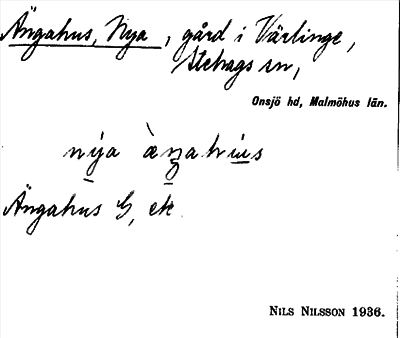 Ängahus, Nya, gård i Värlinge,
Stehags sn,
Onsjö hd, Malmöhus län.
Ängahus G, ek.
NILS NILSSON 1936.